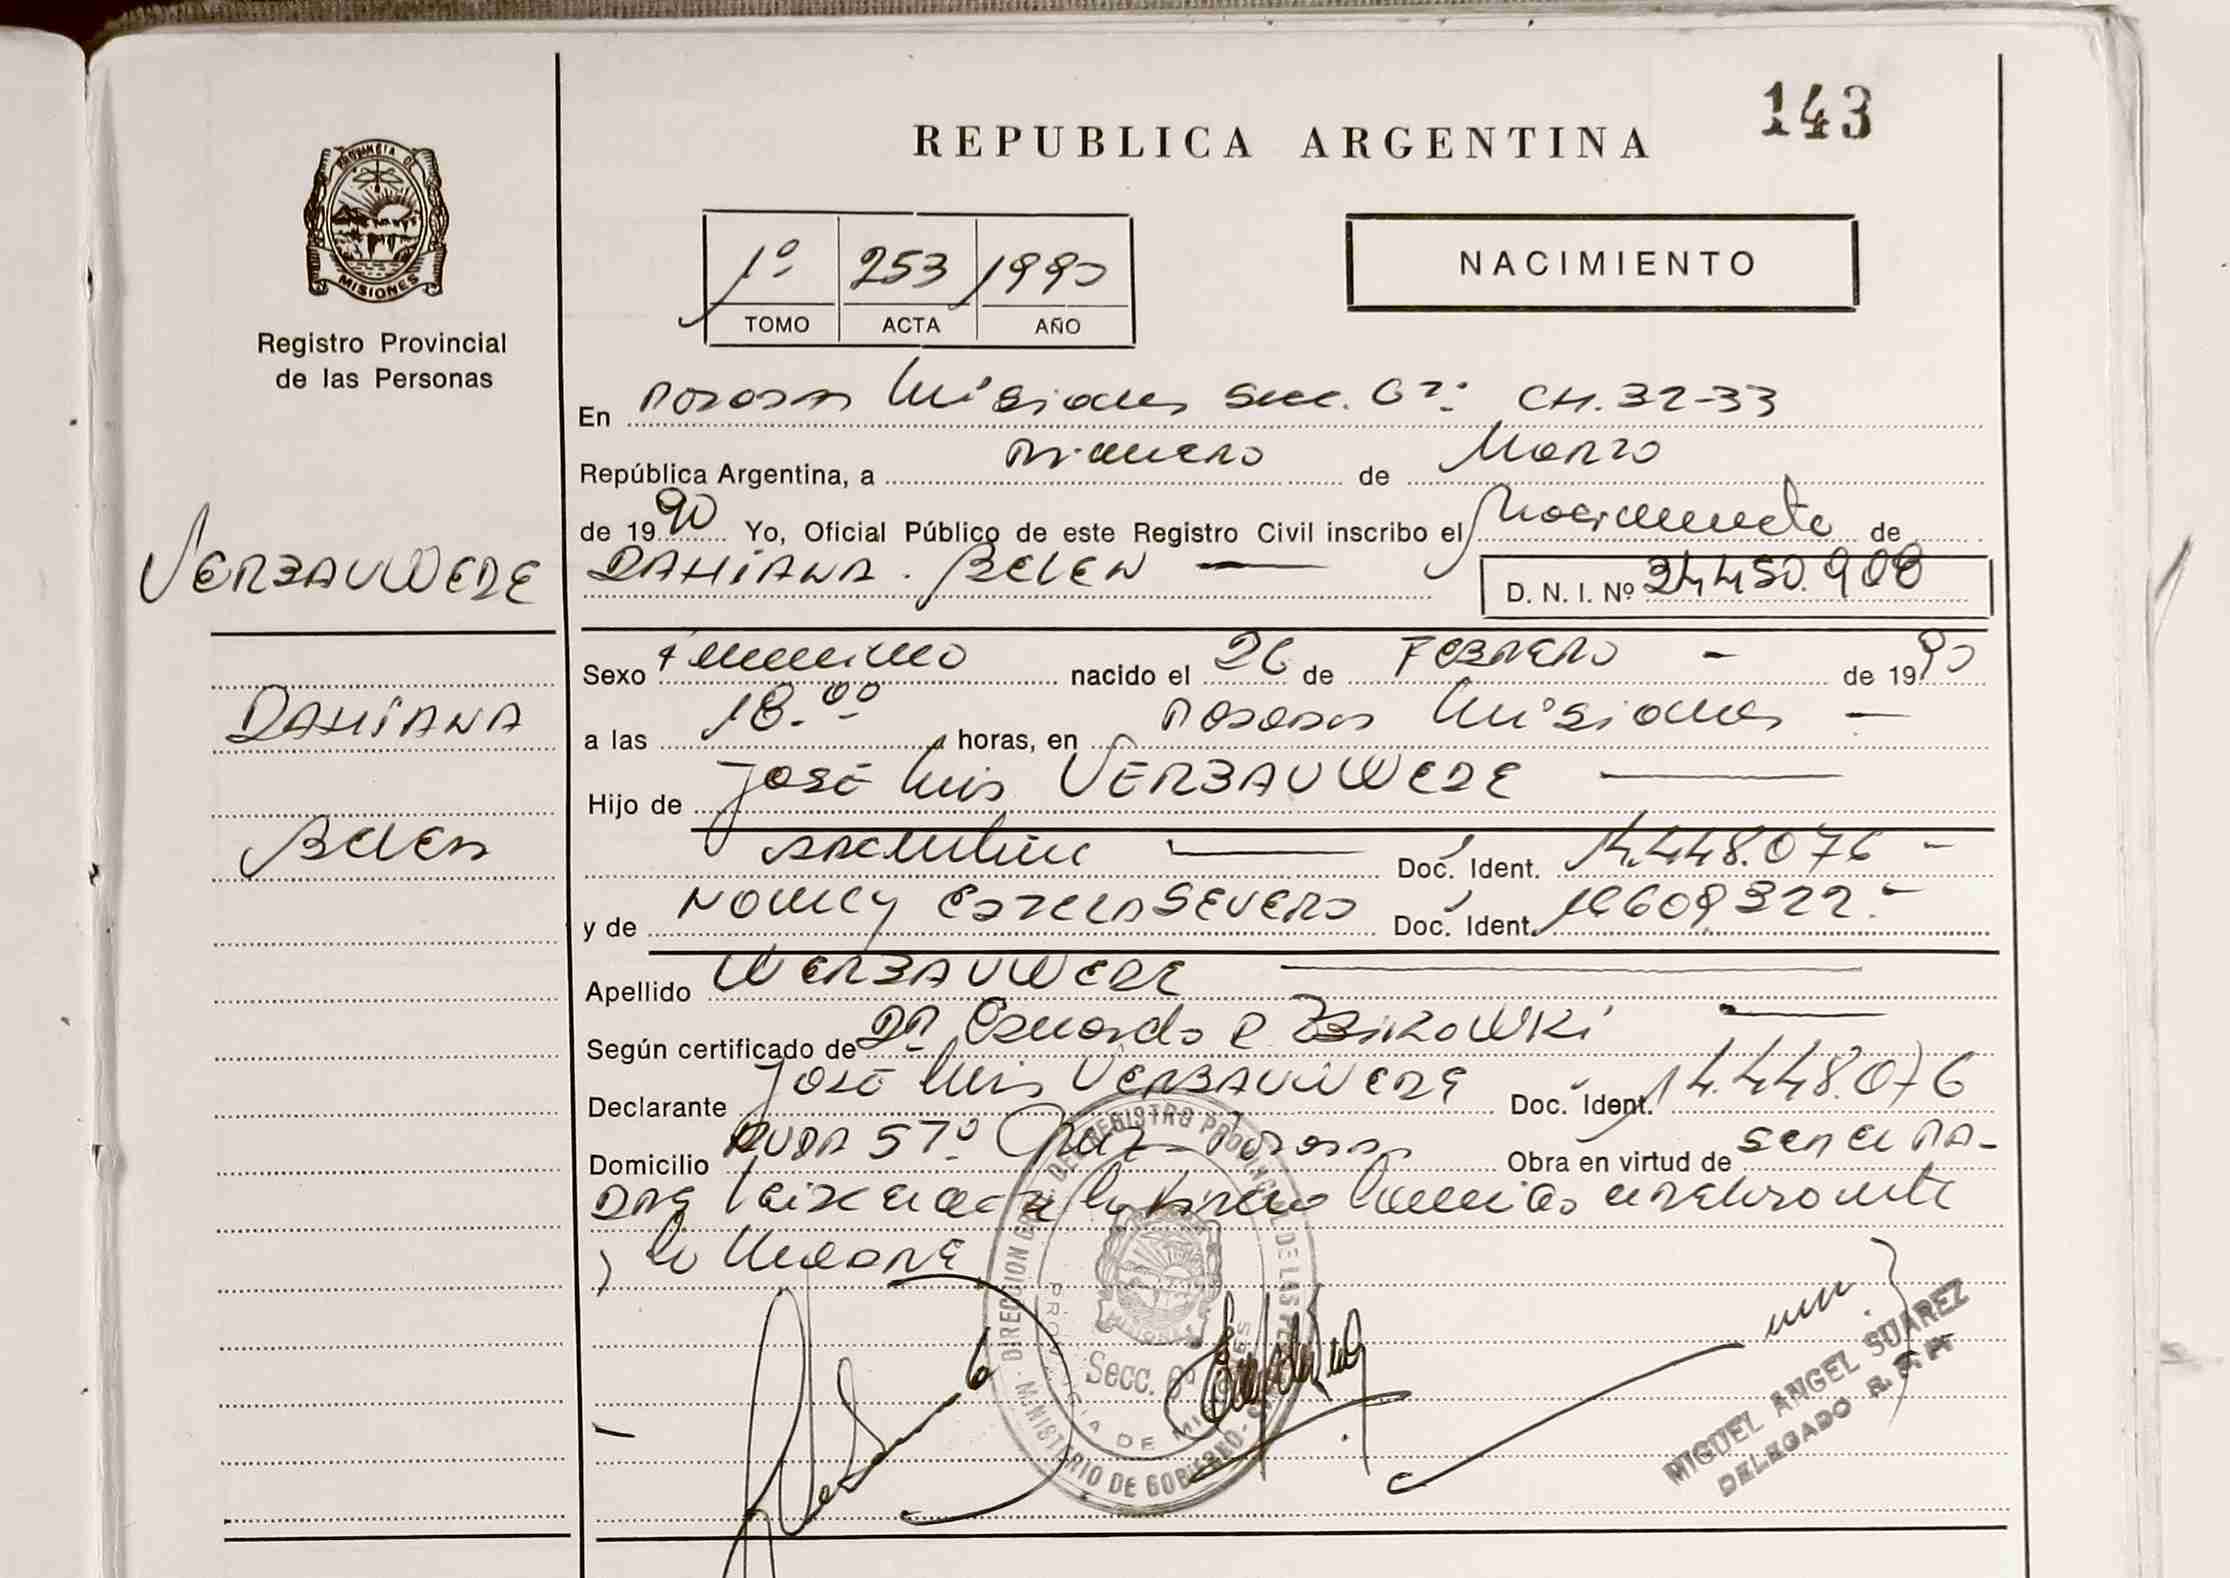 143
REPUBLICA ARGENTINA
PROVINCIA DE
MISIONES
Registro Provincial
de las Personas
1º 253 1990
TOMO ACTA AÑO
NACIMIENTO
En Posadas Misiones Secc. 6ª: CH. 32-33
República Argentina, a primero de Marzo
de 1990 Yo, Oficial Público de este Registro Civil inscribo el Nacimiento de
VERBAUWEDE
DAMIANA. BELEN
D. N. I. Nº 34450.908
Sexo Femenino nacido el 26 de FEBRERO - de 1990
DAMIANA
a las 18.00 horas, en Posadas Misiones -
Hijo de José Luis VERBAUWEDE
BELEN
Argentino Doc. Ident. 14.448.076 -
y de NANCY ESTELA SEVERO Doc. Ident. 16609322.-
Apellido VERBAUWEDE
Según certificado de Dr. Eduardo
Declarante José Luis VERBAUWEDE Doc. Ident. 14.448.076
Domicilio AVDA Sta Cruz - Posadas Obra en virtud de ser el PA-
DRE
la MADRE
DIRECCION GRAL DEL REGISTRO PROVINCIAL DE LAS PERSONAS
PROVINCIA DE MISIONES
Secc. 6ª
MINISTERIO DE GOBIERNO
MIGUEL ANGEL SUAREZ
DELEGADO R. P. P.